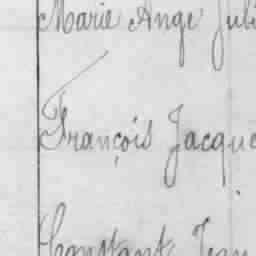 Marie Ange Juli
François Jacque
Constant Jean